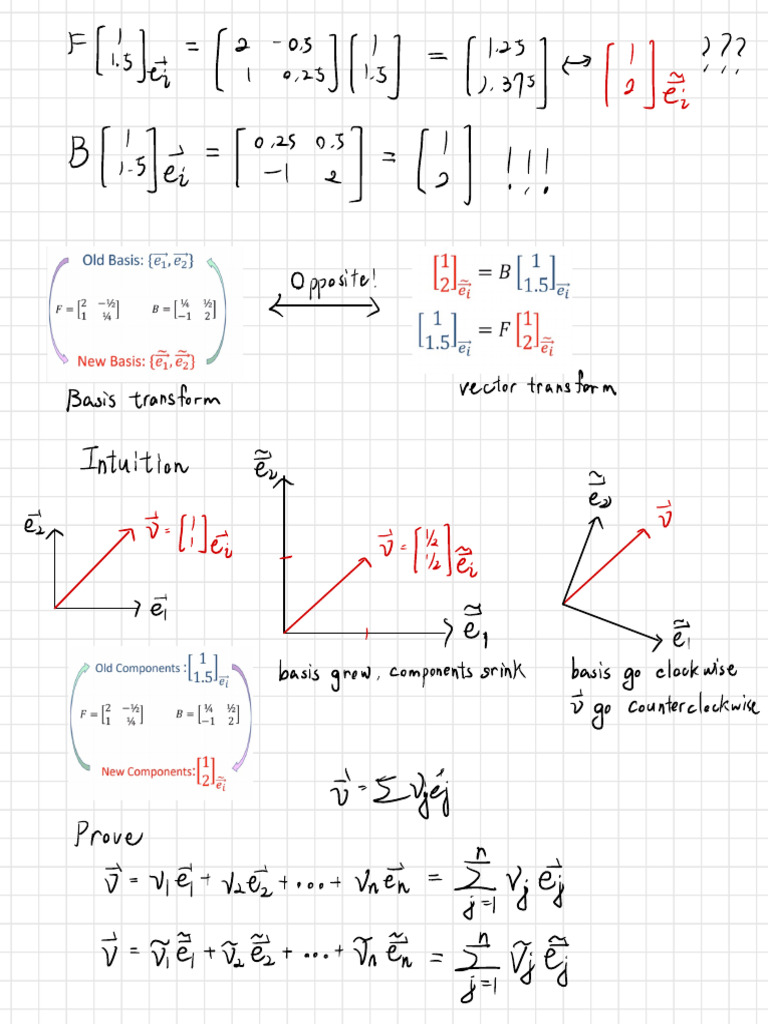 F [1 1.5]e⃗i = [2 -0.5 1 0.25] [1 1.5] = [1.25 1.375] ↔ [1 2]ẽ⃗i ???
B [1 1.5]e⃗i = [0.25 0.5 -1 2] = [1 2] !!!
Old Basis: {e⃗1, e⃗2}
F = [2 -½ 1 ¼] B = [¼ ½ -1 2]
New Basis: {ẽ⃗1, ẽ⃗2}
Basis transform
Opposite!
[1 2]ẽ⃗i = B [1 1.5]e⃗i
[1 1.5]e⃗i = F [1 2]ẽ⃗i
vector transform
Intuition
e⃗2
v⃗ = [1 1]e⃗i
e⃗1
ẽ⃗2
v⃗ = [1/2 1/2]ẽ⃗i
ẽ⃗1
basis grew, components srink
ẽ⃗2
v⃗
ẽ⃗1
basis go clockwise
v⃗ go counterclockwise
Old Components : [1 1.5]e⃗i
F = [2 -½ 1 ¼] B = [¼ ½ -1 2]
New Components: [1 2]ẽ⃗i
v⃗ = Σ vj e⃗j
Prove
v⃗ = v1 e⃗1 + v2 e⃗2 + ... + vn e⃗n = Σ n j=1 vj e⃗j
v⃗ = ṽ1 ẽ⃗1 + ṽ2 ẽ⃗2 + ... + ṽn ẽ⃗n = Σ n j=1 ṽj ẽ⃗j